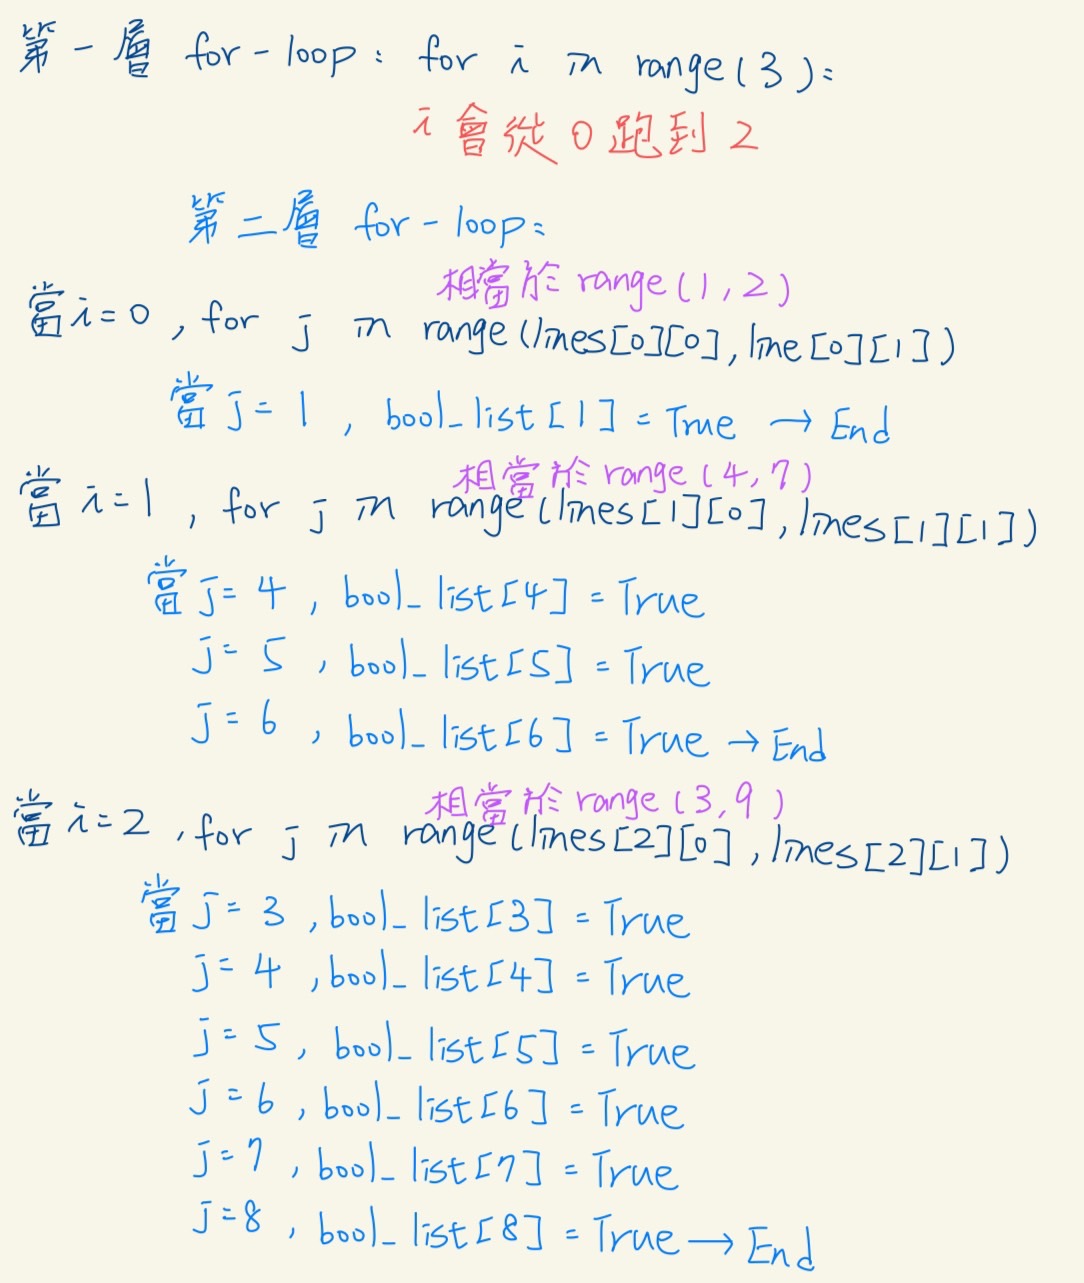 第一層 for-loop: for i in range(3):
i 會從 0 跑到 2
第二層 for-loop:
相當於 range(1,2)
當 i=0, for j in range(lines[0][0], line[0][1])
當 j=1, bool_list[1] = True → End
相當於 range(4,7)
當 i=1, for j in range(lines[1][0], lines[1][1])
當 j=4, bool_list[4] = True
j=5, bool_list[5] = True
j=6, bool_list[6] = True → End
相當於 range(3,9)
當 i=2, for j in range(lines[2][0], lines[2][1])
當 j=3, bool_list[3] = True
j=4, bool_list[4] = True
j=5, bool_list[5] = True
j=6, bool_list[6] = True
j=7, bool_list[7] = True
j=8, bool_list[8] = True → End